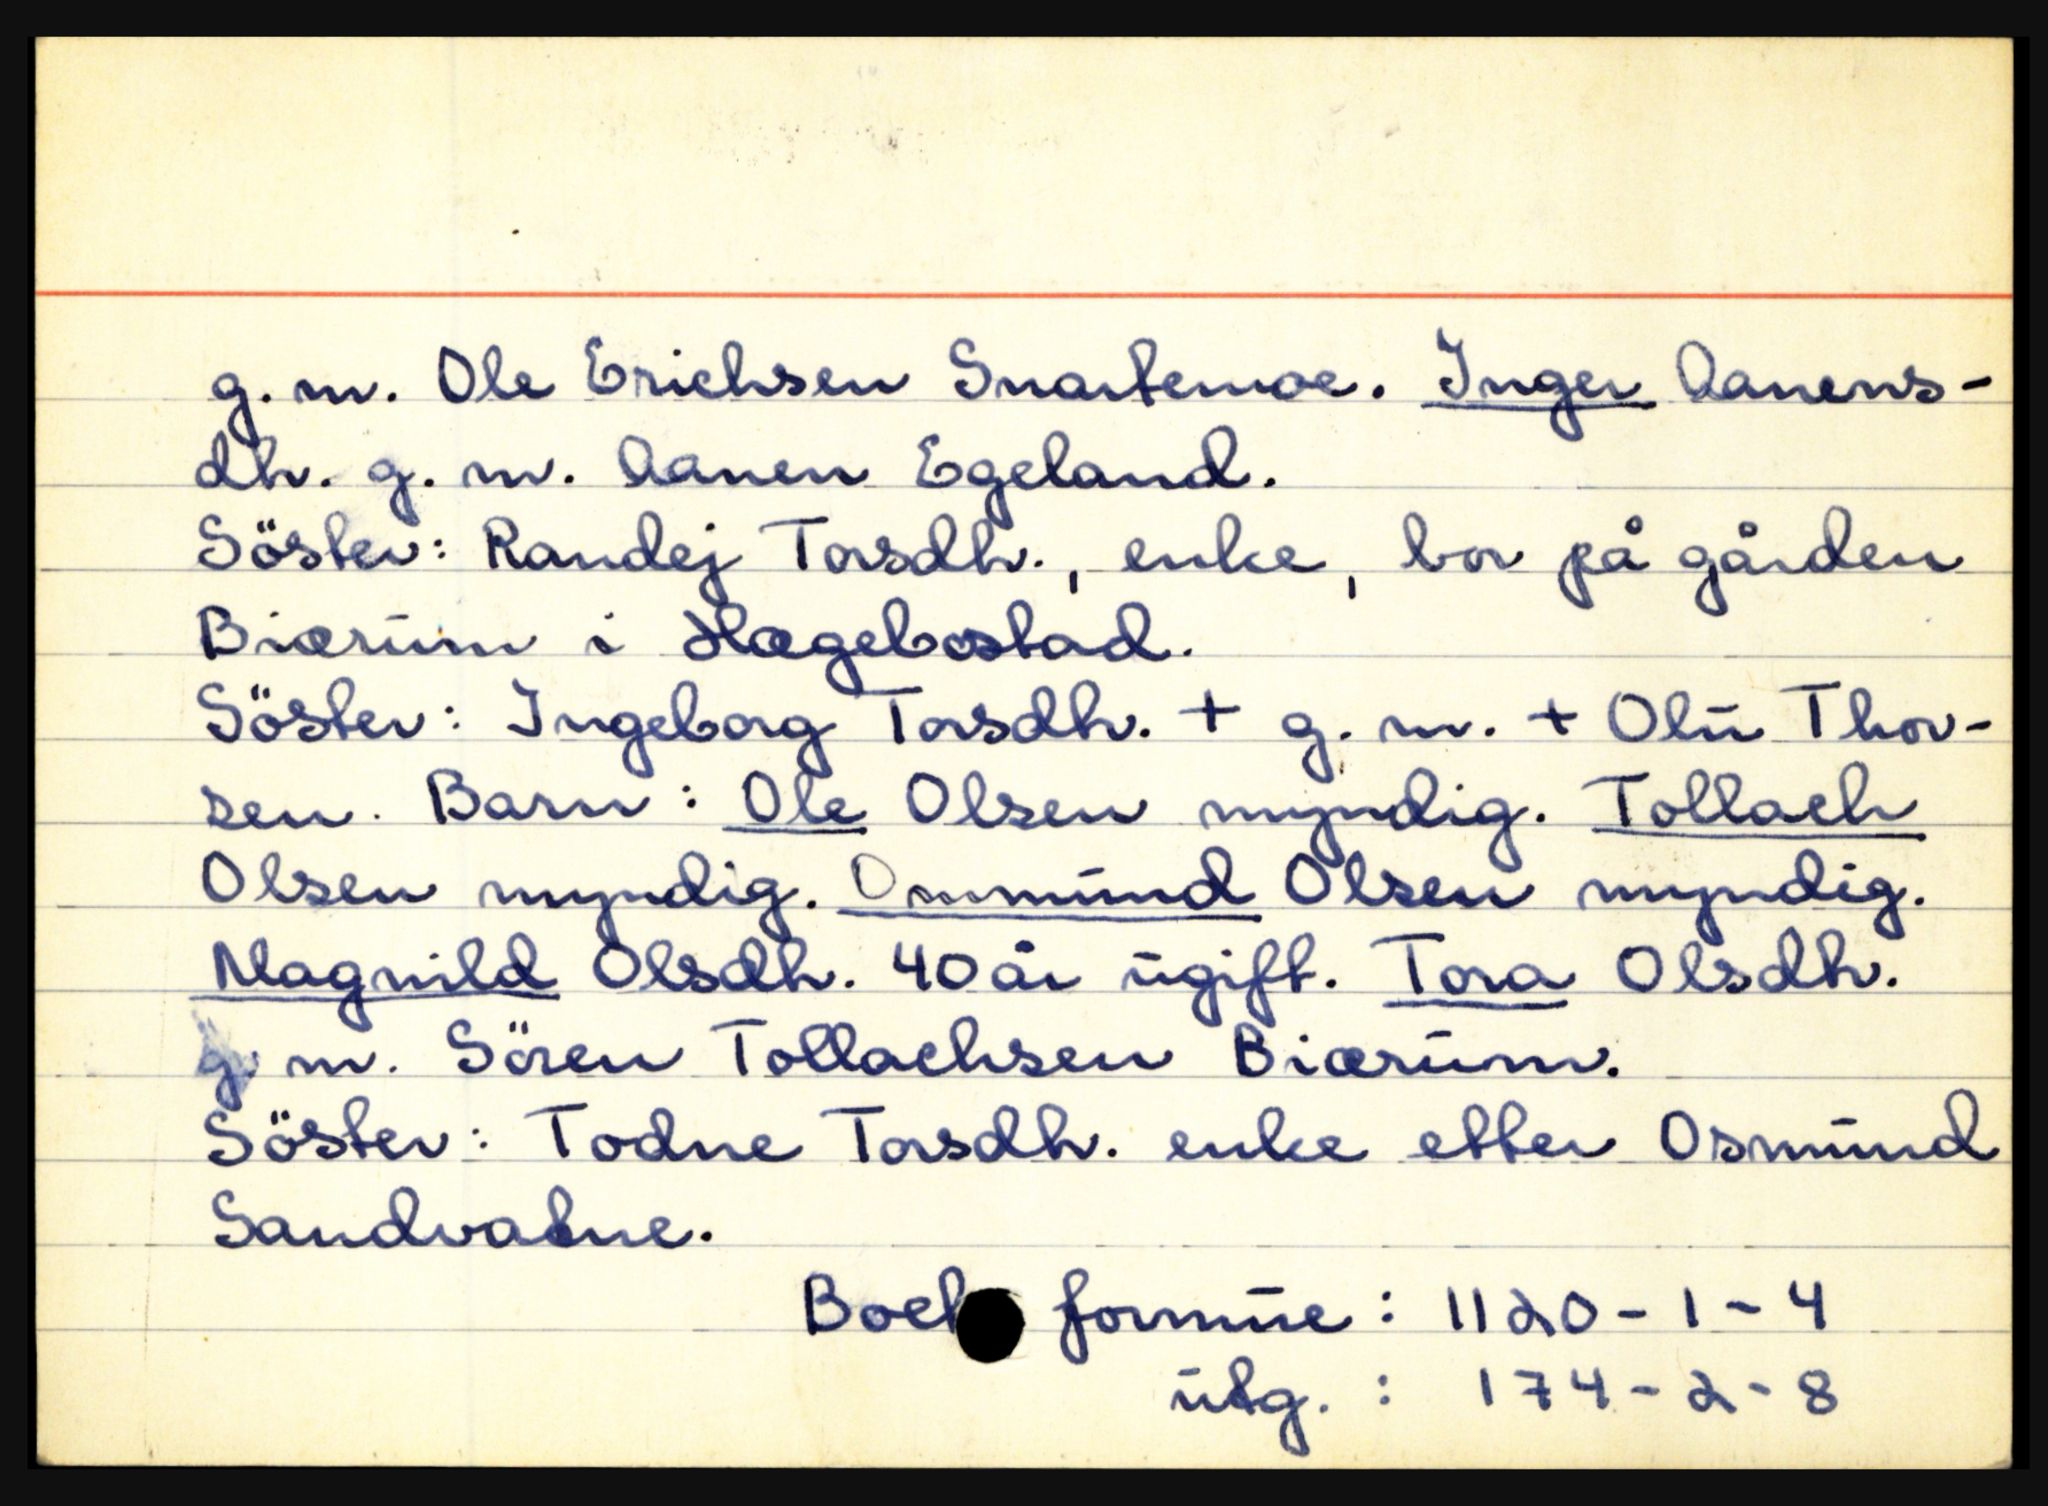 g. m. Ole Erichsen Snartemoe. Inger Aanens-
dh. g. m. Aanen Egeland.
Söster: Randej Torsdh., enke, bor på gården
Biærum i Hægebostad.
Söster: Ingeborg Torsdh. + g. m. + Olu Thor-
sen. Barn: Ole Olsen myndig. Tollach
Olsen myndig. Ommund Olsen myndig.
Magnild Olsdh. 40 år ugift. Tora Olsdh.
g. m. Sören Tollachsen Biærum.
Söster: Todne Torsdh. enke etter Osmund
Sandvatne.
Boets formue: 1120-1-4
utg. : 174-2-8